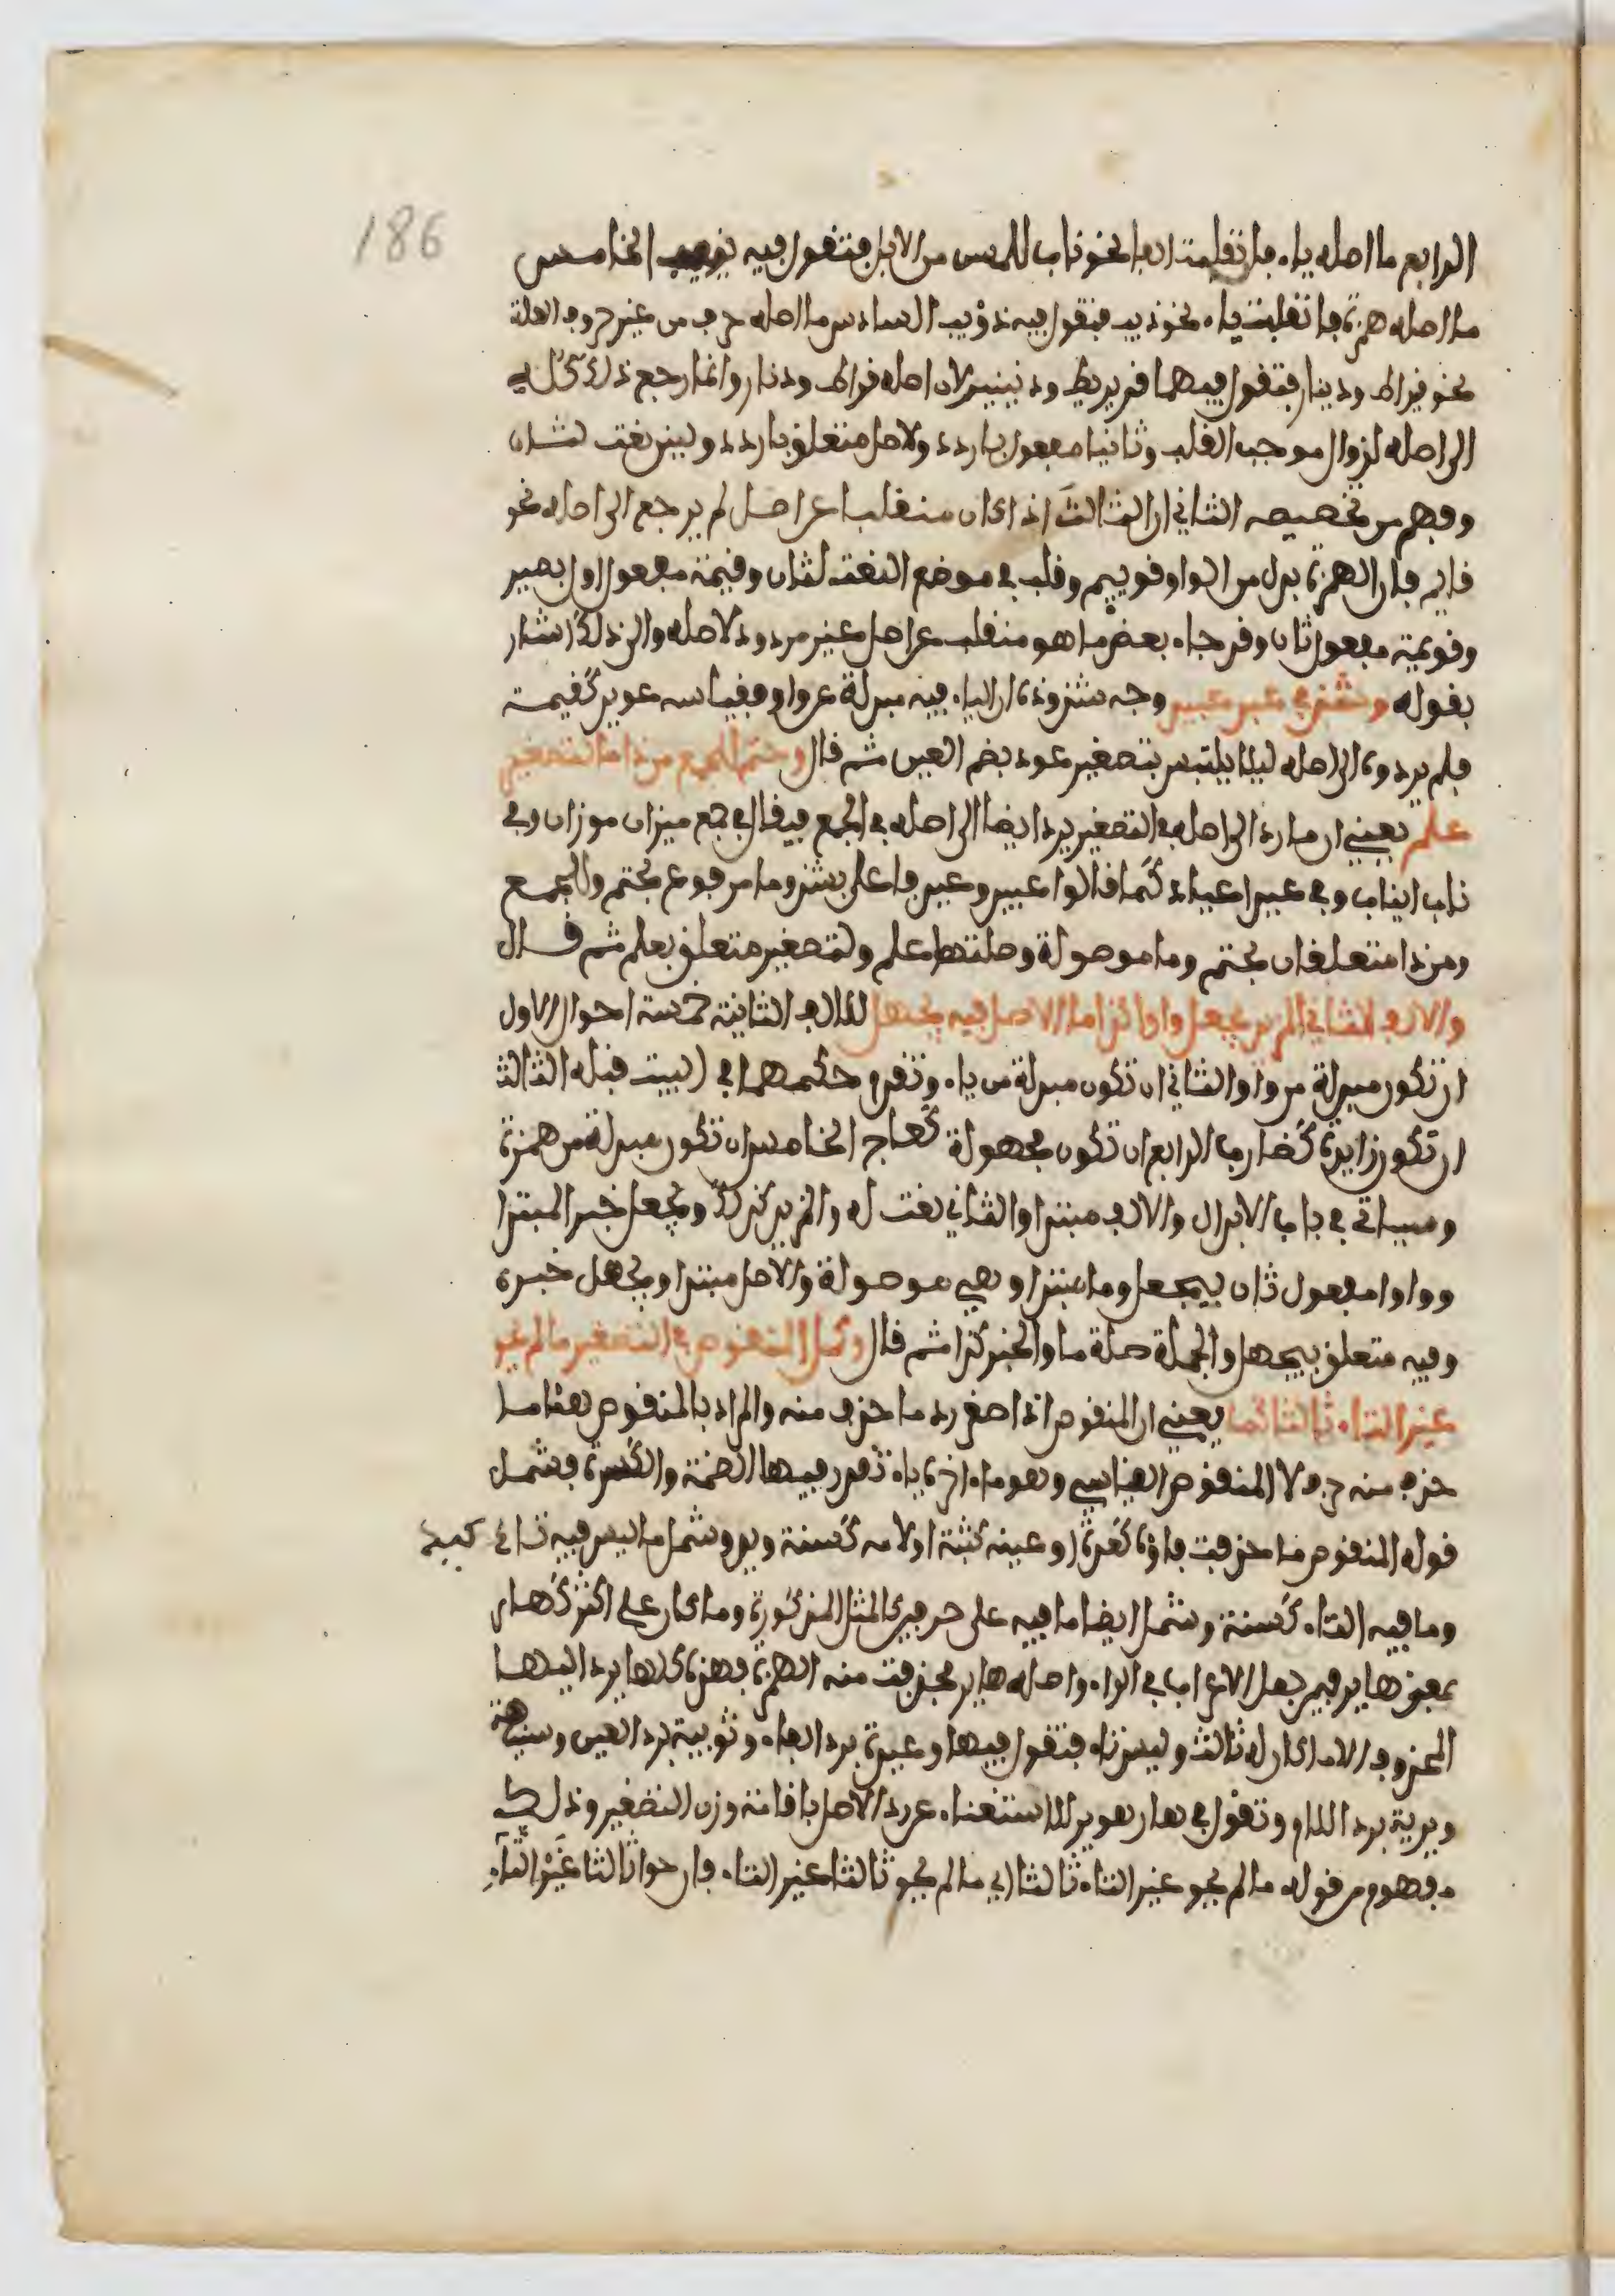 186
الرابع ما اصله ياء فانقلبت الفا نحو ناب للمسن من الابل فتقول فيه نييب الخامس
ما اصله همزة فانقلبت ياء نحو ذيب فتقول فيه ذؤيب السادس ما اصله حرف من غير حروف العلة
نحو قيراط ودينار فتقول فيهما قريريط ودنينير لان اصله قراط ودنار وانما رجع ذلك كله
الى اصله لزوال موجب القلب وثانيا مفعول باردد ولاصل متعلق باردد ولين نعت لثان
وفهم من تخصيصه الثاني ان الثالث اذا كان منقلبا عن اصل لم يرجع الى اصله نحو
قايم فان الهمزة بدل من الواو قوييم وقلب في موضع النعت لثان وقيمة مفعول اول بصير
وقويمة مفعول ثان وقد جاء بعض ما هو منقلب عن اصل غير مردود لاصله والى ذلك اشار
بقوله وشذ في عيد عييد وجه شذوذه ان الياء فيه مبدلة عن واو فقياسه عويد كقيمة
فلم يردوه الى اصله ليلا يلتبس بتصغير عود بضم العين ثم قال وحتم للجمع من ذا ما لتصغير
علم يعني ان ما رد الى اصله في التصغير يرد ايضا الى اصله في الجمع فيقال في جمع ميزان موزان وفي
ناب انياب وفي عيد اعياد كما قالوا عييد وعيد فاعل بشذ وما مرفوع بحتم وللجمع
ومن ذا متعلقان بحتم وما موصولة وصلتها علم ولتصغير متعلق بعلم ثم قال
والالف الثاني المزيد يجعل واوا كذا ما الاصل فيه يجهل للالف الثانية خمسة احوال الاول
ان تكون مبدلة من واو الثاني ان تكون مبدلة من ياء وتقدم حكمهما في البيت قبله الثالث
ان تكون زايدة كضارب الرابع ان تكون مجهولة كعاج الخامس ان تكون مبدلة من همزة
وسياتي في باب الابدال والالف مبتدا والثاني نعت له والمزيد كذلك ويجعل خبر المبتدا
وواوا مفعول ثان بيجعل وما مبتدا وهي موصولة والاصل مبتدا ويجهل خبره
وفيه متعلق بيجهل والجملة صلة ما والخبر كذا ثم قال وكمل المنقوص في التصغير ما لم يحو
غير التاء ثالثا كما يعني ان المنقوص اذا صغر رد ما حذف منه والمراد بالمنقوص هنا ما
حذف منه حرف لا المنقوص القياسي وهو ما اخره ياء تقدر فيها الضمة والكسرة فشمل
قوله المنقوص ما حذفت فاؤه كعدة او عينه كثبة او لامه كسنة ويد وشمل ما ليس فيه تاء كيد
وما فيه التاء كسنة وشمل ايضا ما فيه على حرفين كالمثل المذكورة وما كان على اكثر كهار
بمعنى هاير فيمن جعل الاعراب في الراء واصله هاير فحذفت منه الهمزة فهذه كلها يرد اليها
المحذوف الا ما كان له ثالث وليس تاء فتقول فيها وعيدة برد الفاء وثويبة برد العين وسنيهة
ويدية برد اللام وتقول في هار هوير للاستغناء عن رد الاصل باقامة وزن التصغير وذلك
مفهوم من قوله ما لم يحو غير التاء ثالثا اي ما لم يحو ثالثا غير التاء فان حوا ثالثا غير التاء